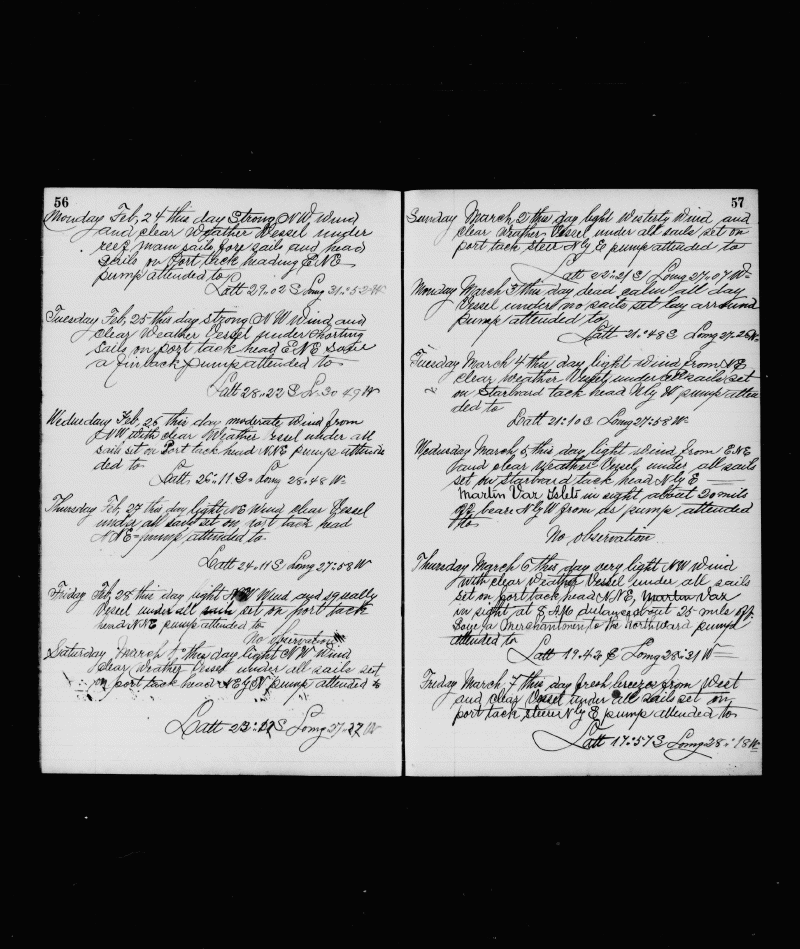 56
Monday Feb, 24 this day Strong N W, wind
and clear Weather Vessel under
reef main sails, fore sails and head
Sails on Port tack heading E N E
pump attended to
Latt 29.02 S Long 31.52 W
Tuesday Feb, 25 this day strong N W Wind and
clear Weather Vessel under
Sails on port tack head E N E
a pump attended to
Latt 28.22 S Lo. 30 49 W
Wednesday Feb, 26 this day moderate wind from
N W with clear Weather essel under all
sails set on Port tack head N.N.E pump attende
ded to
Latt 26.11 S. Long 28.48 W
Thursday Feb, 27 this day light N E Wind clear Vessel
under all sails set on port tack head
N N E pump attended to
Latt 24.11 S Long 27:58 W
Friday Feb, 28 this day light N W Wind and squally
Vessel under all sails set on port tack
head N N E pump attended to
No observation
Saturday March 1, this day light N W Wind
clear weather Vessel under all sails set
on port tack head N E y N pump attended to
Latt 23: S Long 27.27 W
57
Sunday March, 2 this day light Westerly Wind and
clear Weather Vessel under all sails set on
port tack steer N ly E pump attended to
Latt 22:21 S Long 27.07 W
Monday March 3 this day dead calm all day
Vessel under no sails set lay arround
pump attended to
Latt 21.48 S Long 27.26 W
Tuesday March 4 this day light wind from N E
clear weather Vessel under all sails set
on Starboard tack head N ly W pump atten
ded to
Latt 21:10 S Long 27:58 W
Wednesday March, 5, this day light wind from E N E
and clear weather Vessel under all sails
set on starboard tack head N ly E
Martin Var Islets in sight about 20 mils
off bears N ly W from us pump attended
to
No observation
Thursday March 6 this day very light N W Wind
with clear weather Vessel under all sails
set on port tack head N.N.E, Martin Var
in sight at 8 A M distance about 25 mls off.
a Merchantmen to the Northward pump
attended to
Latt 19.42 S Long 28.31 W
Friday March, 7 this day fresh breeze from West
and clear Vessel under all sails set on
port tack steer N ly E pump attended to
Latt 17:57 S Long 28:18 W